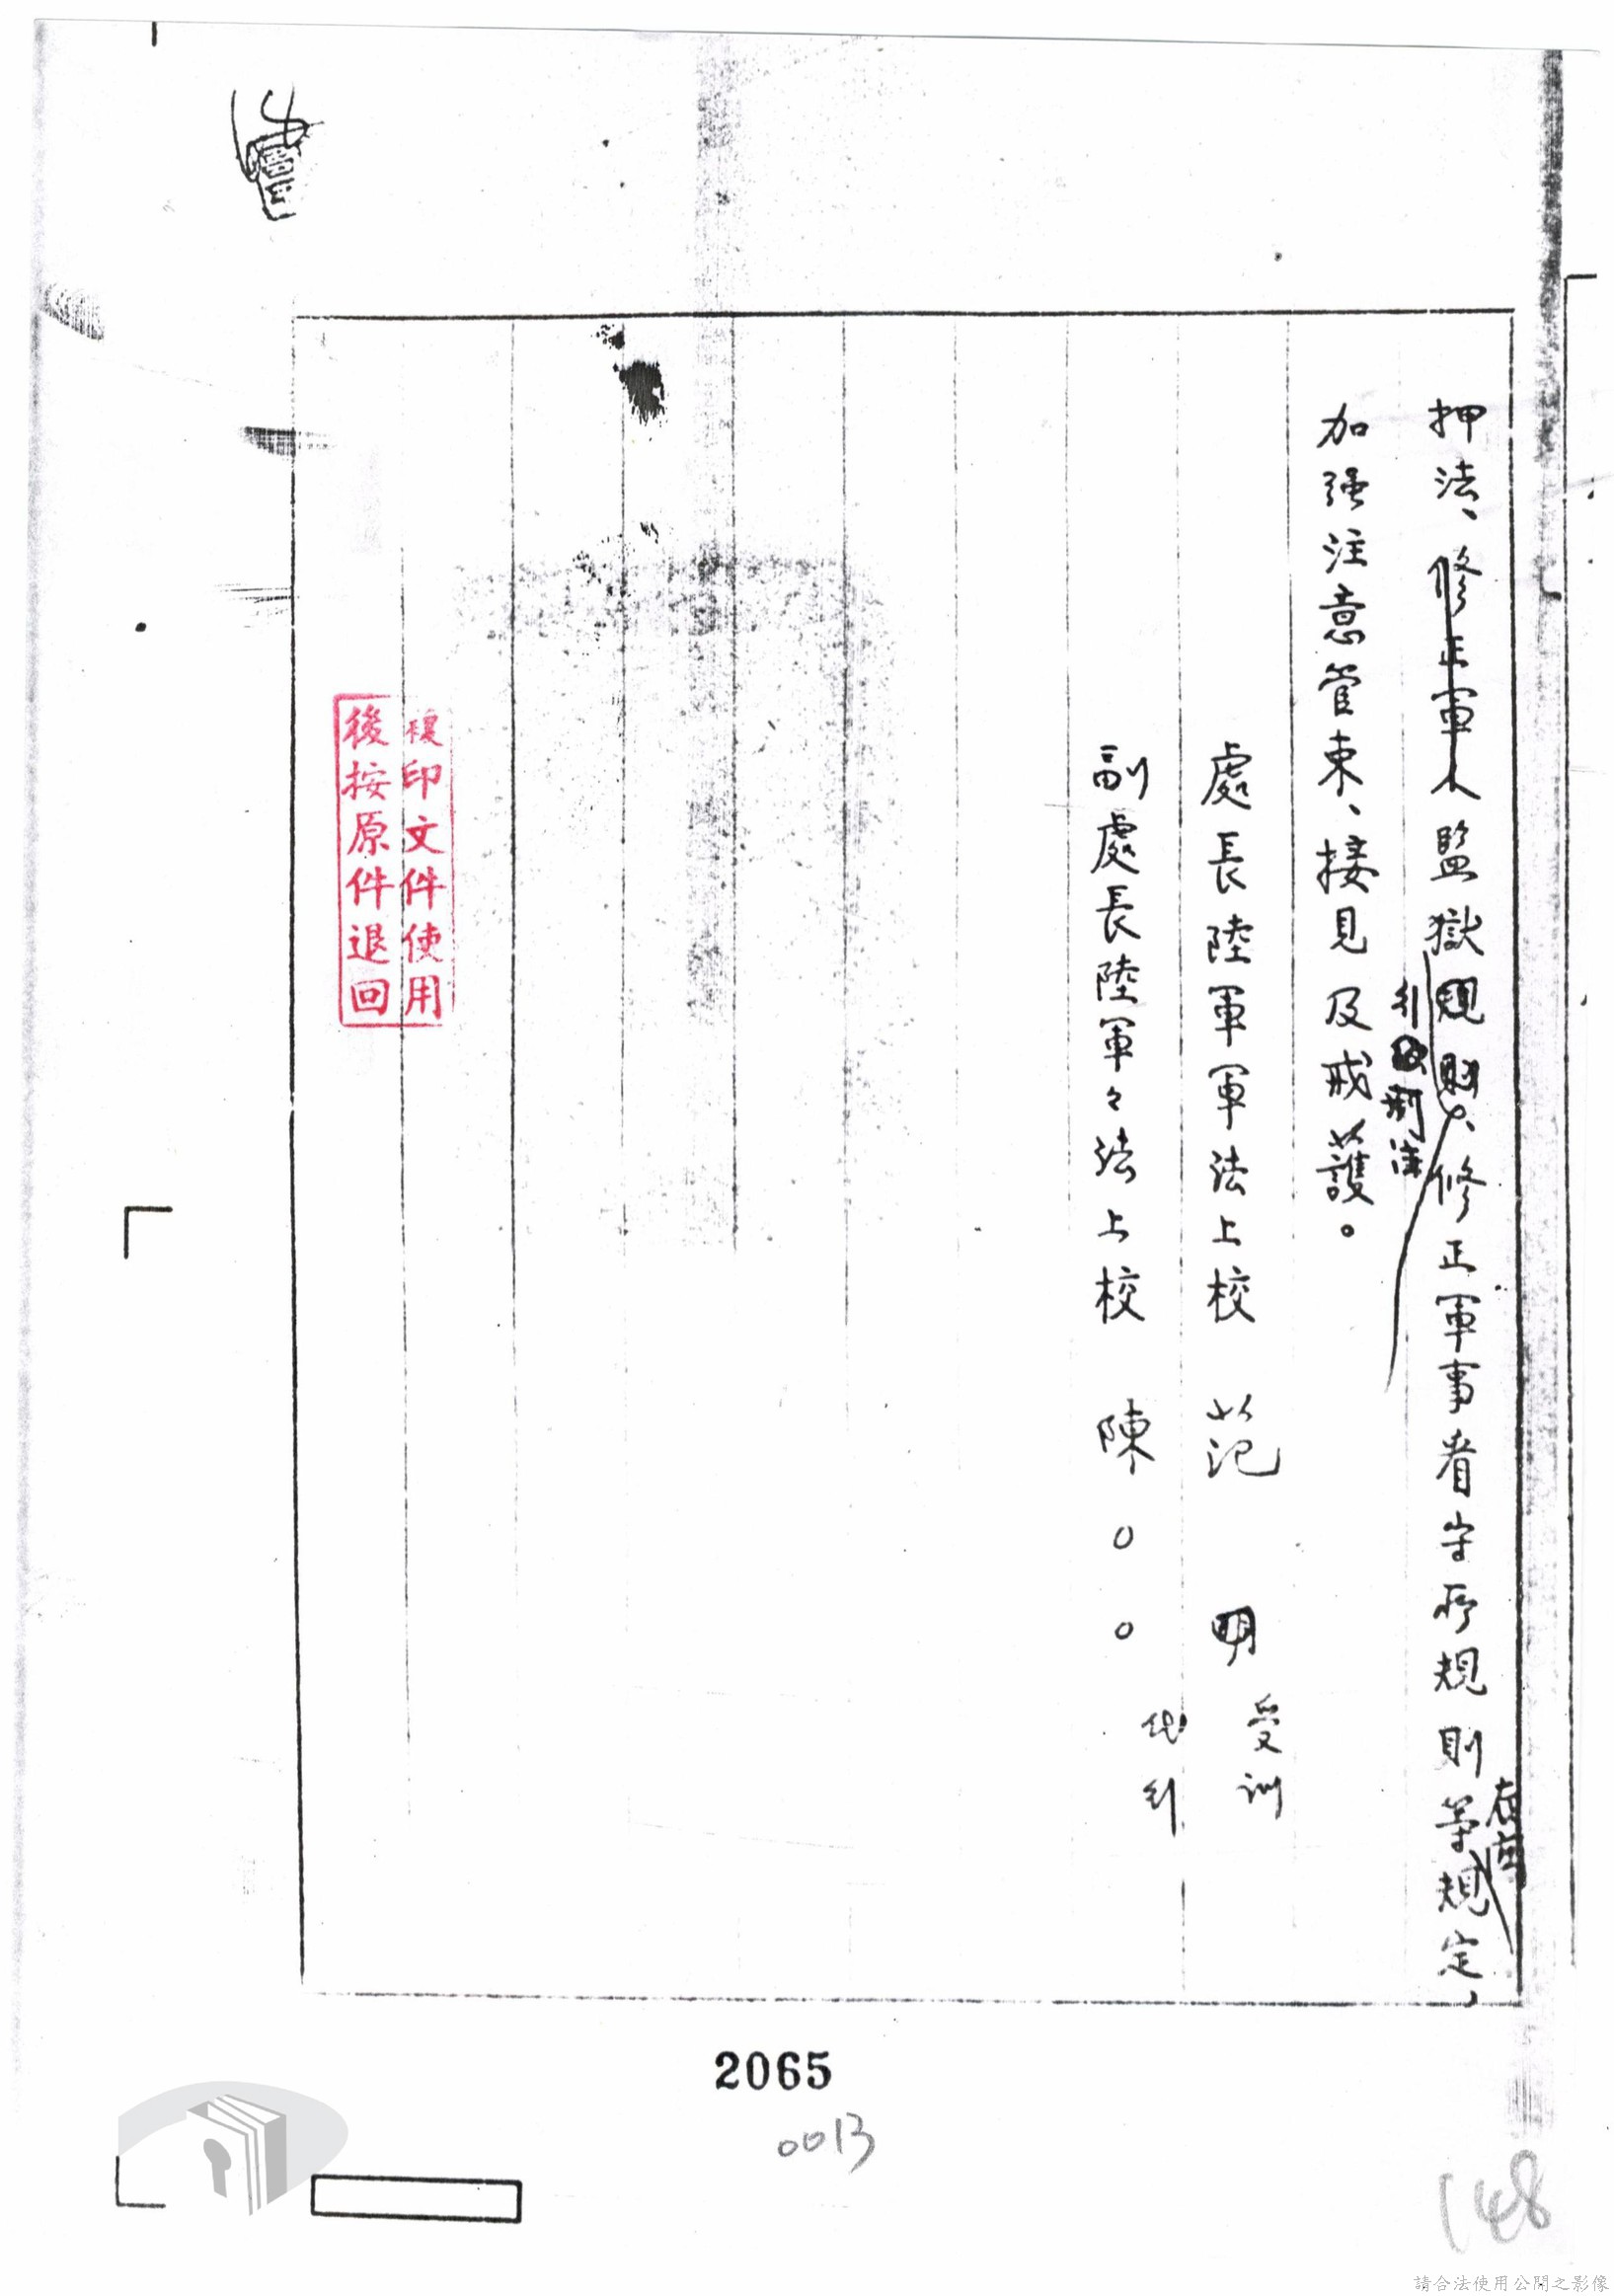 押法、修正軍人監獄規則、修正軍事看守所規則等規定，
行刑法
加强注意管束、接見及戒護。
處長陸軍軍法上校 范 明 受訓
副處長陸軍々法上校 陳○○ 代行
複印文件使用
後按原件退回
2065
0013
148
請合法使用公開之影像